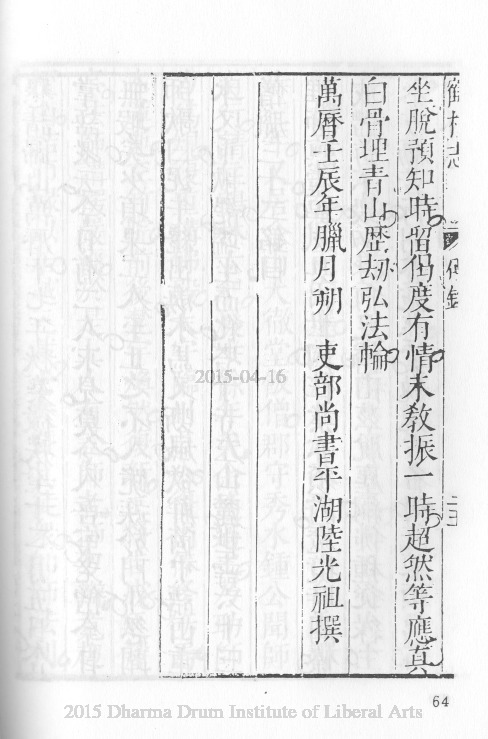 坐脫預知時留偈度有情末敎振一時超然等應真
白骨埋青山歷劫弘法輪
萬曆壬辰年臘月朔 吏部尚書平湖陸光祖撰
2015-04-16
64
2015 Dharma Drum Institute of Liberal Arts